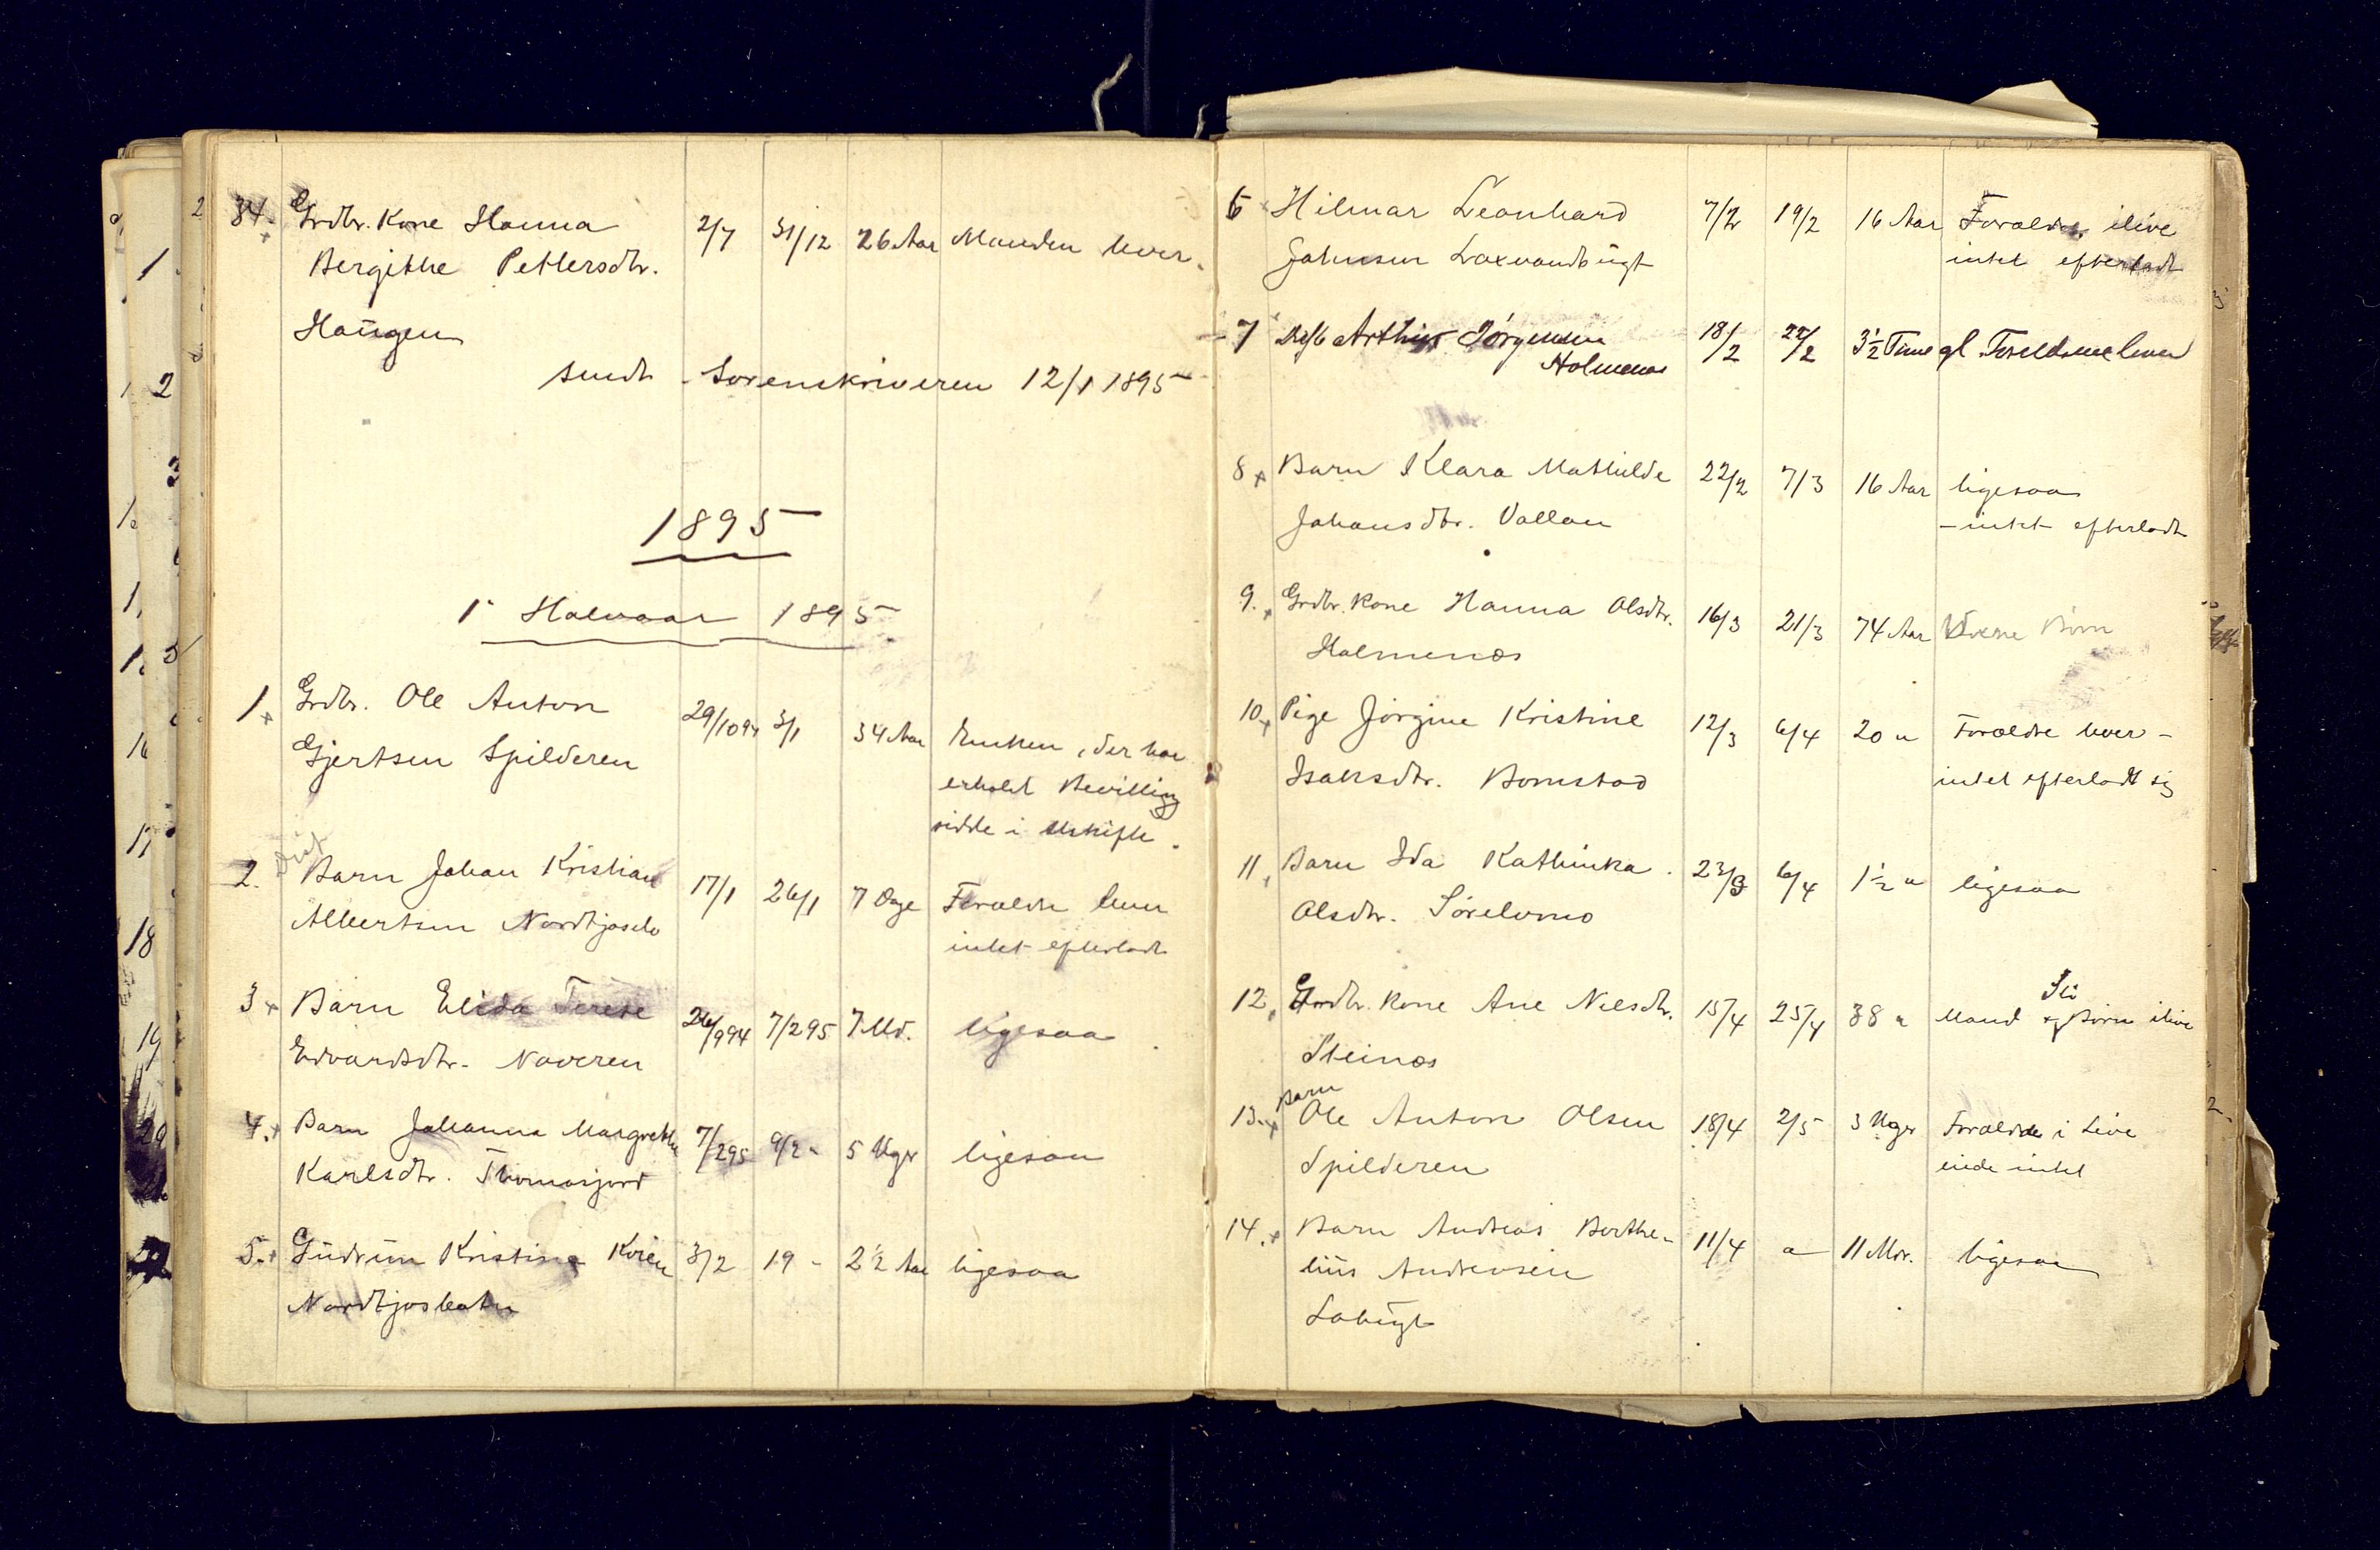 34. Grdbr. Kone Hanna 2/7 31/12 26 Aar Manden lever.
Bergithe Pettersdtr.
Haugen
sendt Sorenskriveren 12/1 1895
1895
1ste Halvaar 1895
1 Grdbr. Ole Anton 29/10 94 3/1 34 Aar Enken, der har
Gjertsen Spilderen erholdt Bevilling
sidde i Uskifte.
2. Barn Johan Kristian 17/1 26/1 7 Dage Forældre lever
Albertsen Nordkjosele intet efterladt
3 Barn Elida Terese 26/9 94 7/2 95 7 Md. ligesaa
Edvardsdtr. Naveren
4. Barn Johanna Margrethe 7/2 95 9/2 " 5 Uger ligesaa
Karlsdtr. Thomasjord
5. Gudrun Kristine Koren 3/2 19 - 2½ Aar ligesaa
Nordkjosbotn
6 Hilmar Leonhard 7/2 19/2 16 Aar Forældre ilive
Johnsen Laxvandbugt intet efterladt
7 Arthur Jørgensen 18/2 22/2 3½ Time gl. Foreldrene lever
Holmenes
8 Barn Klara Mathilde 22/2 7/3 16 Aar ligesaa
Johansdtr. Vollan - intet efterladt
9. Grdbr. Kone Hanna Olsdtr. 16/3 21/3 74 Aar Voxne Børn
Holmenes
10 Pige Jørgine Kristine 12/3 6/4 20 " Forældre lever -
Isaksdtr. Bomstad intet efterladt sig
11 Barn Ida Kathinka 23/3 6/4 1½ " ligesaa
Olsdtr. Sørelvmo
12 Grdbr. Kone Ane Nilsdtr. 15/4 25/4 38 " Mand og Børn ilive
Steinæs
Barn
13. Ole Anton Olsen 18/4 2/5 3 Uger Forældre i Live
Spilderen eiede intet
14. Barn Andreas Berthe- 11/4 " 11 Mdr. ligesaa
lius Andreasen
Labugt